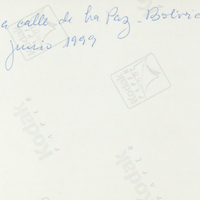 a calle de La Paz - Bolivia
junio 1999
Kodak
Kodak
Kodak